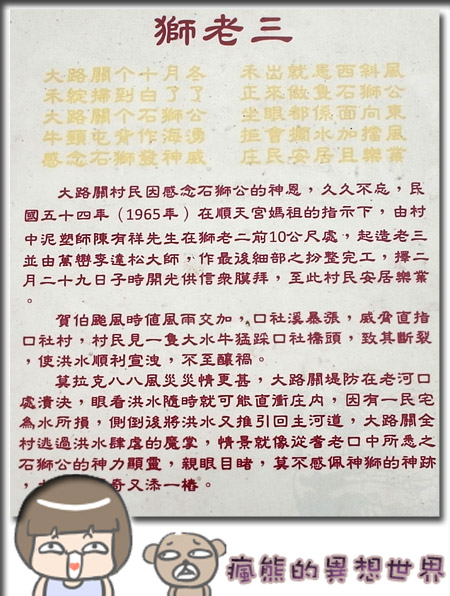 獅老三
大路關个十月冬　禾出就愚西斜風
禾綻掃到白了了　正來做隻石獅公
大路關个石獅公　坐眼都係面向東
牛頸屯背作海湧　攔水加擋風
感念石獅發神威　庄民安居且樂業
大路關村民因感念石獅公的神恩，久久不忘，民
國五十四年（1965年）在順天宮媽祖的指示下，由村
中泥塑師陳有祥先生在獅老二前10公尺處，起造老三
並由萬巒李達松大師，作最後細部之扮整完工，擇二
月二十九日子時開光供信眾膜拜，至此村民安居樂業
。
賀伯颱風時值風雨交加，口社溪暴漲，威脅直指
口社村，村民見一隻大水牛猛踩口社橋頭，致其斷裂
，使洪水順利宣洩，不至釀禍。
莫拉克八八風災災情更甚，大路關堤防在老河口
處潰決，眼看洪水隨時就可能直衝庄內，因有一民宅
為水所損，側倒後將洪水又推引回主河道，大路關全
村逃過洪水肆虐的魔掌，情景就像從耆老口中所悉之
石獅公的神力顯靈，親眼目睹，莫不感佩神獅的神跡
，奇又添一樁。
瘋熊的異想世界